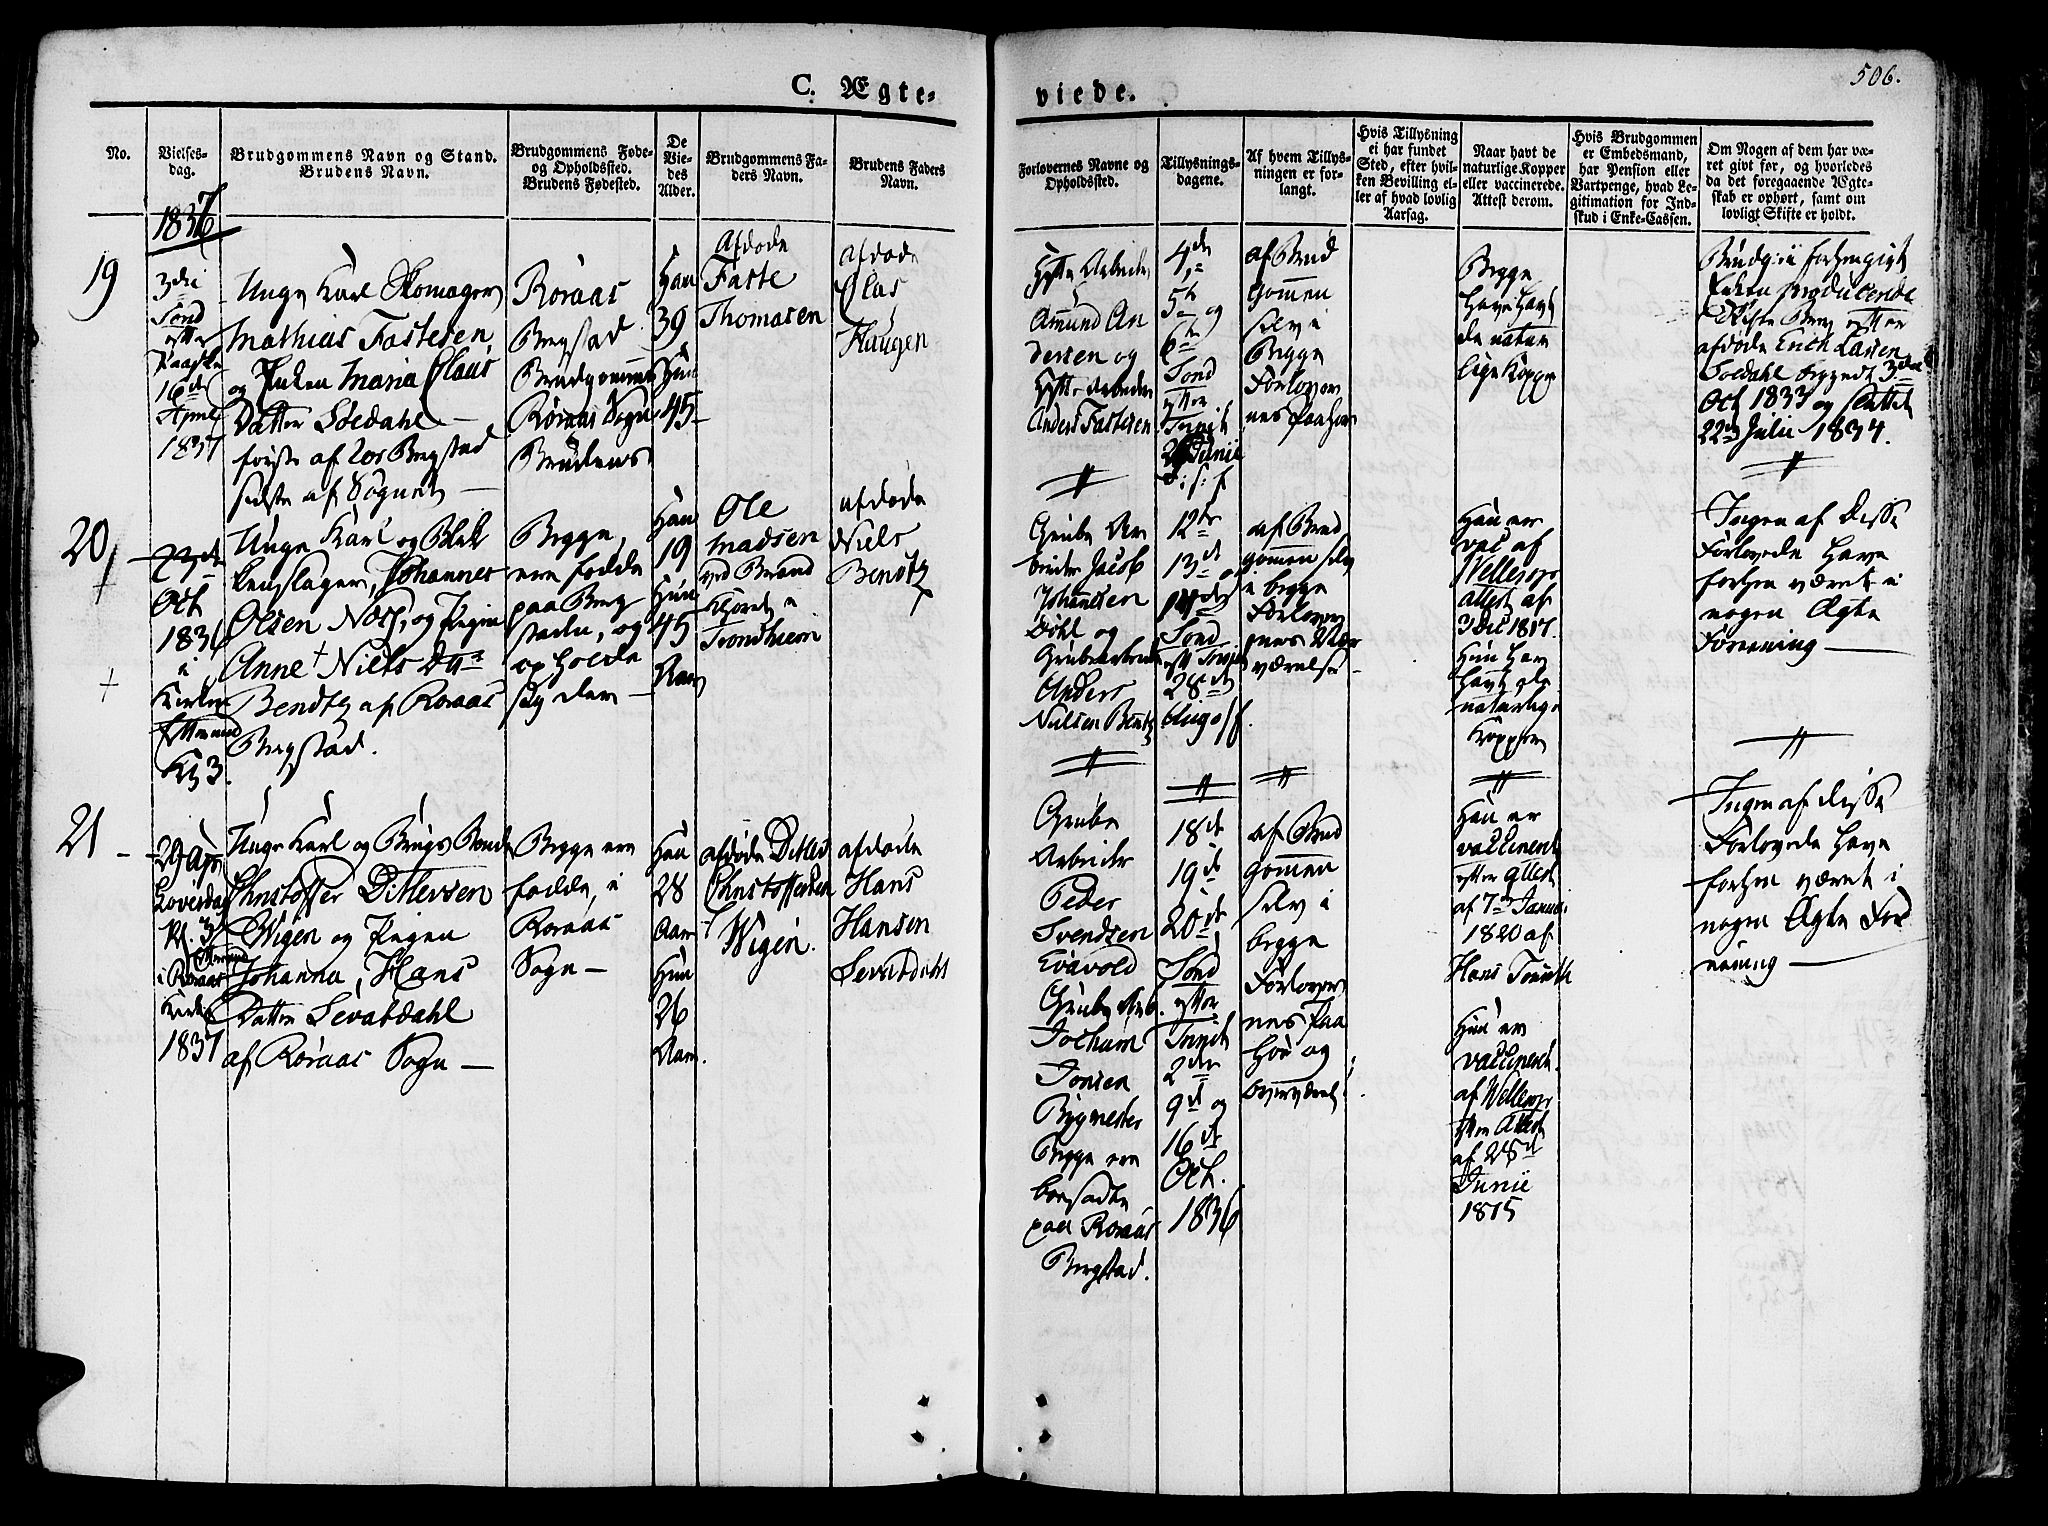 506.
C. Ægte-
viede.
No.
Vielses-
dag.
Brudgommens Navn og Stand.
Brudens Navn.
Brudgommens Føde-
og Opholdssted.
Brudens Fødested.
De
Vie-
des
Alder.
Brudgommens Fa-
ders Navn.
Brudens Faders
Navn.
Forlovernes Navne og
Opholdssted.
Tillysnings-
dagene.
Af hvem Tillys-
ningen er for-
langt.
Hvis Tillysning
ei har fundet
Sted, efter hvil-
ken Bevilling el-
ler af hvad lovlig
Aarsag.
Naar havt de
naturlige Kopper
eller vaccinerede.
Attest derom.
Hvis Brudgommen
er Embedsmand,
har Pension eller
Vartpenge, hvad Le-
gitimation for Ind-
skud i Enke-Cassen.
Om Nogen af dem har væ-
ret givt før, og hvorledes
da det foregaaende Ægte-
skab er ophørt, samt om
lovligt Skifte er holdt.
1837
19
3die
Sønd
efter
Paaske
16de
April
1837
Unge Karl Skomager
Mathias Fastesen
og Enken Maria Olaus
Datter Søedahl
første af Røraas Bergstad
sidste af Sognet
Røraas
Bergstad
Brudgommen
Røraas Sogn
Brudens
Han
39
Hun
45
Afdøde
Faste
Thomasen
afdøde
Olas
Haugen
Hytte Arbeider
Amund An
dersen og
Hytte Arbeider
Anders Fastesen
4de
5te og
6te
Sønd
efter
Trinit
Junii
af Brud
gommen
selv i
Begge
Forlover
nes Paahør
Begge
have havt
de natur
lige Kopper
Enken producerede
Skifte Brev efter
afdøde Erich Larsen
Soedahl begyndt 3die
Oct 1833 og sluttet
22de Julii 1834.
20
23de
Oct
1836
i
Kirken
Efttermid
Kl 3.
Unge Karl og Blik
kenslager, Johannes
Olsen Norss, og Pigen
Anne + Niels Dttr
Bendtz af Røraas
Bergstad.
Begge
ere fødde
paa Berg
staden, og
opholde
sig der
Han
19
Hun
45
Aar
Ole
Madsen
ved Brand
Trondhiem
afdøde
Niels
Bendtz
Grube Ar
beider Jacob
Johansen
Dohl og
Grubearbeider
Anders
Nielsen Bentz
12te
13de og
14de
Sønd
eftt Trinit
28de
Aug o/f.
af Brud
gommen selv
i begge
Forlover
nes Over
værelse
Han er
vac af
Wellerop
attest af
3 Dec 1817.
Hun har
havt de
naturlige
Kopper
Ingen af disse
Forlovede have
forhen været i
nogen Ægte
Forening
21
29 Apr
Løverdag
Kl. 3
Eftermid
i Røraas
Kirke
1837
Unge Karl og Bergs Bonde
Christoffer Ditlevsen
Wigen og Pigen
Johanna, Hans
Datter Sevatdahl
af Røraas Sogn
Begge ere
fødde i
Røraas
Sogn
Han
28
Aar
Hun
26
Aar.
afdøde Ditlev
Christoffersen
Wigen.
afdøde
Hans
Hansen
Sevatdahl
Grube
Arbeider
Peder
Svendsen
Kværold
Grube Arb.
Jochum
Jonsen
Bygmester
Begge ere
bosadte
paa Røraas
Bergstad.
18de
19de
20de
Sønd
efter
Trinit
2den
9de og
16de
Oct.
1836
af Brud
gommen
selv i
begge
Forlover
nes Paa
hør og
overværelse
Han er
vaccineret
efter Attest
af 7de Januar
1820 af
Hans
Hun er
vaccineret
af Wellerop
efter Attest
af 28de
Junii
1815
Ingen af disse
Forlovede have
forhen været i
nogen Ægte For
ening